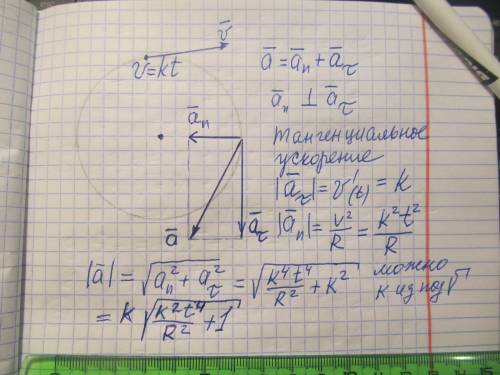 v̄
v=kt
ā=āₙ+ā_τ
āₙ ⊥ ā_τ
āₙ
тангенциальное
ускорение
|ā_τ|=v'(t)=k
ā
ā_τ
|āₙ|=v²/R=k²t²/R
|ā|=√(aₙ²+a_τ²)=√(k⁴t⁴/R²+k²)
можно
k из под √
=k√(k²t⁴/R²+1)